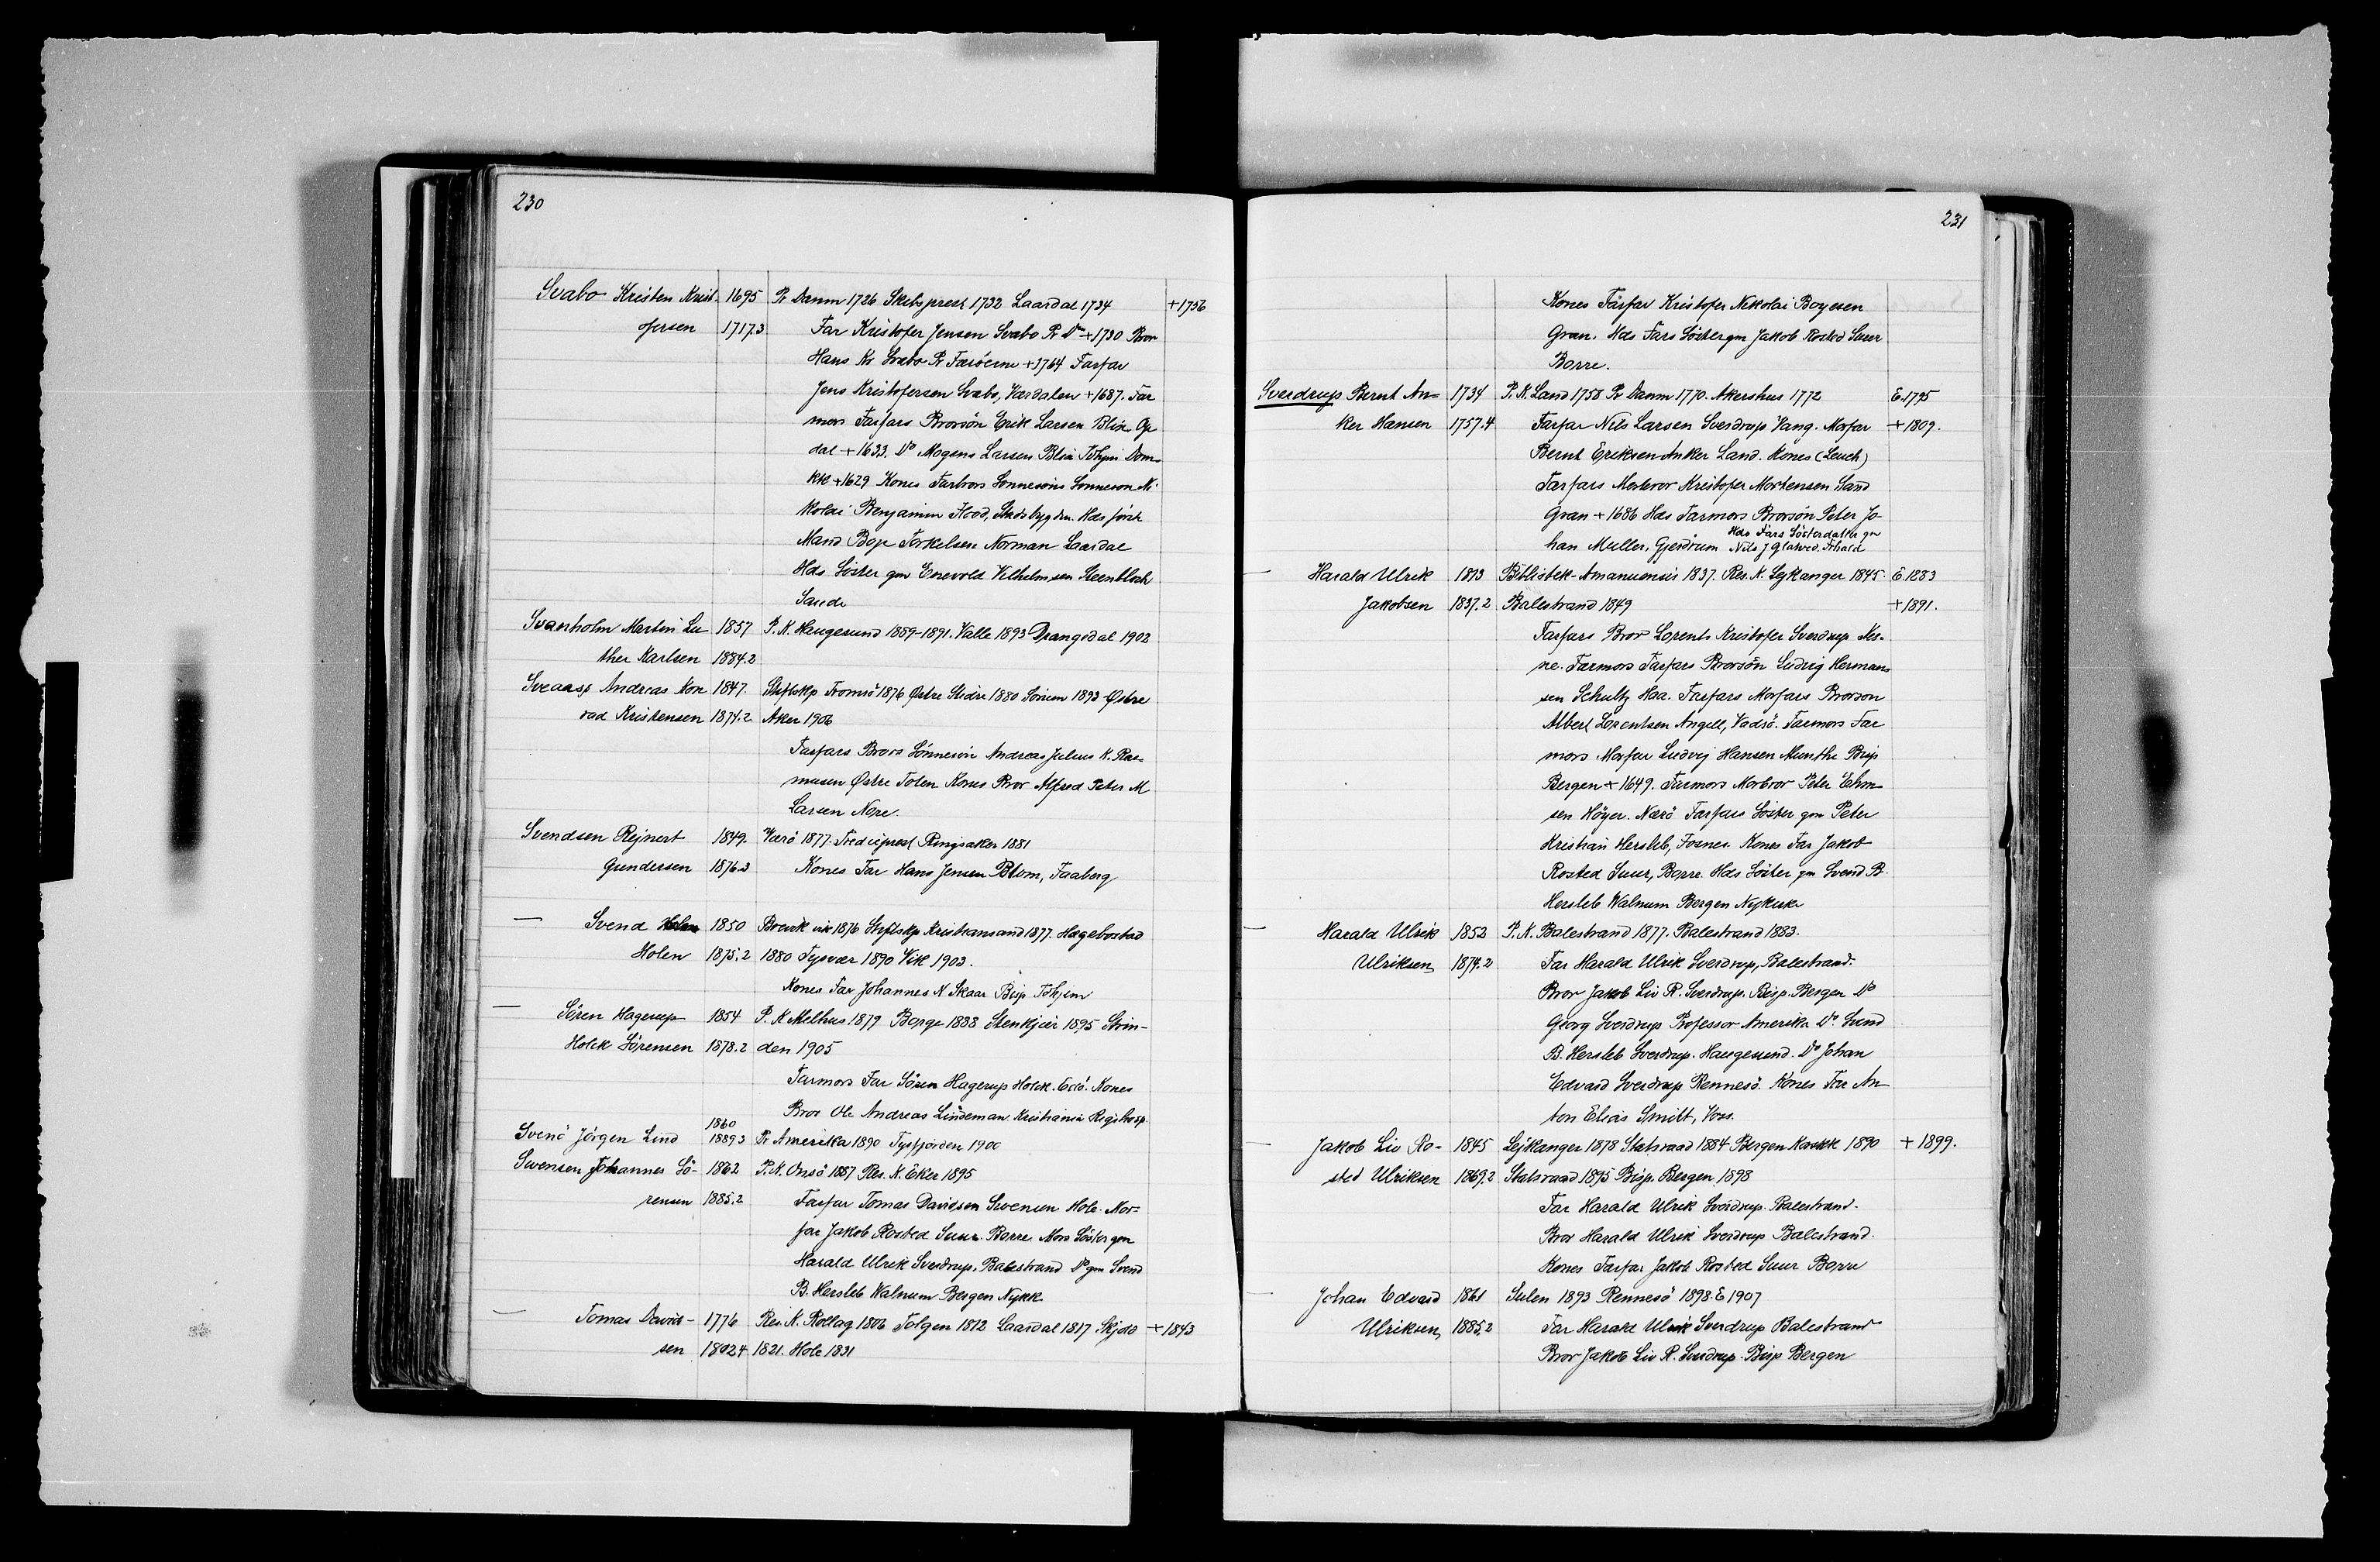 230
Svabo Kristen Krist- 1695 Pr Danm 1726 Skibsprest 1732 Laardal 1734 +1756
ofersen 1717.3 Far Kristofer Jensen Svabo Pr Dm +1730 Bror
Hans Kr Svabo Pr Færöerne +1764 Farfar
Jens Kristofersen Svabo, Værdalen +1687. Far
mors Farfars Brorsön Erik Larsen Blix Op
dal +1633. Do Mogens Larsen Blix Tdhjm Dom
kk +1629 Kones Farbrors Sønnesøns Sønnesøn Ni-
kolai Benjamin Flood, Stadsbygden. Hds förste
Mand Boje Torkelsen Norman Laardal
Hds Söster gm Enevold Vilhelmsen Steenbloch
Sande
Svanholm Martin Lu- 1857 P. K. Haugesund 1889-1891. Valle 1893 Drangedal 1902
ther Karlsen 1884.2
Sveaass Andreas Kon 1847. Stiftskp Tromsö 1876 Østre Slidre 1880 Sörum 1893 Østre
rad Kristensen 1874.2 Aker 1906
Farfars Brors Sönnesön Andreas Julius K. Ras-
mussen Østre Toten Kones Bror Alfred Peter M
Larsen Nore.
Svendsen Rejnert 1849. Værö 1877. Fredieprest Ringsaker 1881
Gundersen 1876.2 Kones Far Hans Jensen Blom, Faaberg
— Svend 1850 Brevik vik 1876 Stiftskp Kristiansand 1877. Hægebostad
Holen 1875.2 1880 Tysvær 1890 Vik 1903.
Kones Far Johannes N Skaar Bisp Tdhjem
— Sören Hagerup 1854 P. K Melhus 1879 Borge 1888 Stenkjær 1895 Strin-
Holck Sörensen 1878.2 den 1905
Farmors Far Sören Hagerup Holck. Edö. Kones
Bror Ole Andreas Lindeman Kristiania Rigshosp.
1860
Svenö Jörgen Lind 1889.3 Pr Amerika 1890 Tysfjorden 1900
Swensen Johannes Sö- 1862 P. K. Onsö 1887 Res. K. Eker 1895
rensen 1885.2 Farfar Tomas Davidsen Swensen Hole. Mor-
far Jakob Rosted Suur. Borre. Mors Söster gm
Harald Ulrik Sverdrup, Balestrand Do gm Svend
B. Hersleb Walnum Bergen Nykk.
— Tomas David- 1776 Res. K. Rollag 1806 Tolgen 1812 Laardal 1817 Skjold +1843
sen 1802.4 1821. Hole 1831
231
Kones Farfar Kristofer Nikolai Boyesen
Gran. Hds Fars Söster gm Jakob Rosted Suur
Borre.
Sverdrup Bernt An- 1734 P. K. Land 1758 Pr Danm 1770. Akershus 1772 E. 1795
ker Hansen 1757.4 Farfar Nils Larsen Sverdrup Vang. Morfar +1809.
Bernt Eriksen Anker Land. Kones (Leuch)
Farfars Morbror Kristofer Mortensen Sand
Gran +1686 Hds Farmors Brorsön Peter Jo-
Hds Fars Sösterdatter gm
han Muller, Gjerdrum Nils J Glatved. Ashald
— Harald Ulrik 1813 Bibliotek-Amanuensis 1837. Res. K. Lejkanger 1845. E. 1883
Jakobsen 1837.2 Balestrand 1849 +1891.
Farfars Bror Lorents Kristofer Sverdrup Nes-
ne. Farmors Farfars Brorsön Ludvig Herman-
sen Schultz Haa. Farfars Morfars Brorson
Albert Lorentsen Angell, Vadsö. Farmors Far
mors Morfar Ludvig Hansen Munthe Bisp
Bergen +1649. Farmors Morbror Peter
sen Höyer. Nærö Farfars Söster gm Peter
Kristian Hersleb, Fosnes. Kones Far Jakob
Rosted Suur, Borre. Hds Söster gm Svend B.
Hersleb Walnum Bergen Nykirke
— Harald Ulrik 1852 P. K. Balestrand 1877. Balestrand 1883.
Ulriksen 1874.2 Far Harald Ulrik Sverdrup, Balestrand.
Bror Jakob Liv R. Sverdrup. Bisp. Bergen Do
Georg Sverdrup Professor Amerika Do. Svend
B. Hersleb Sverdrup. Haugesund. Do Johan
Edvard Sverdrup Rennesö. Kones Far An-
ton Elias Smitt, Voss.
— Jakob Liv Ro- 1845 Lejkanger 1878 Statsraad 1884 Bergen Korskk 1890 +1899.
sted Ulriksen 1869.2 Statsraad 1895 Bisp. Bergen 1898
Far Harald Ulrik Sverdrup. Balestrand.
Bror Harald Ulrik Sverdrup Balestrand.
Kones Farfar Jakob Rosted Suur Borre
— Johan Edvard 1861 Sulen 1893 Rennesö 1898 E 1907
Ulriksen 1885.2 Far Harald Ulrik Sverdrup Balestrand
Bror Jakob Liv R. Sverdrup. Bisp Bergen